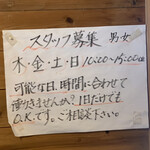 スタッフ募集 男・女
木・金・土・日 10:00~15:00位
可能な日、時間に合わせて
働けませんか?1日だけでも
O.K.です。ご相談下さい。